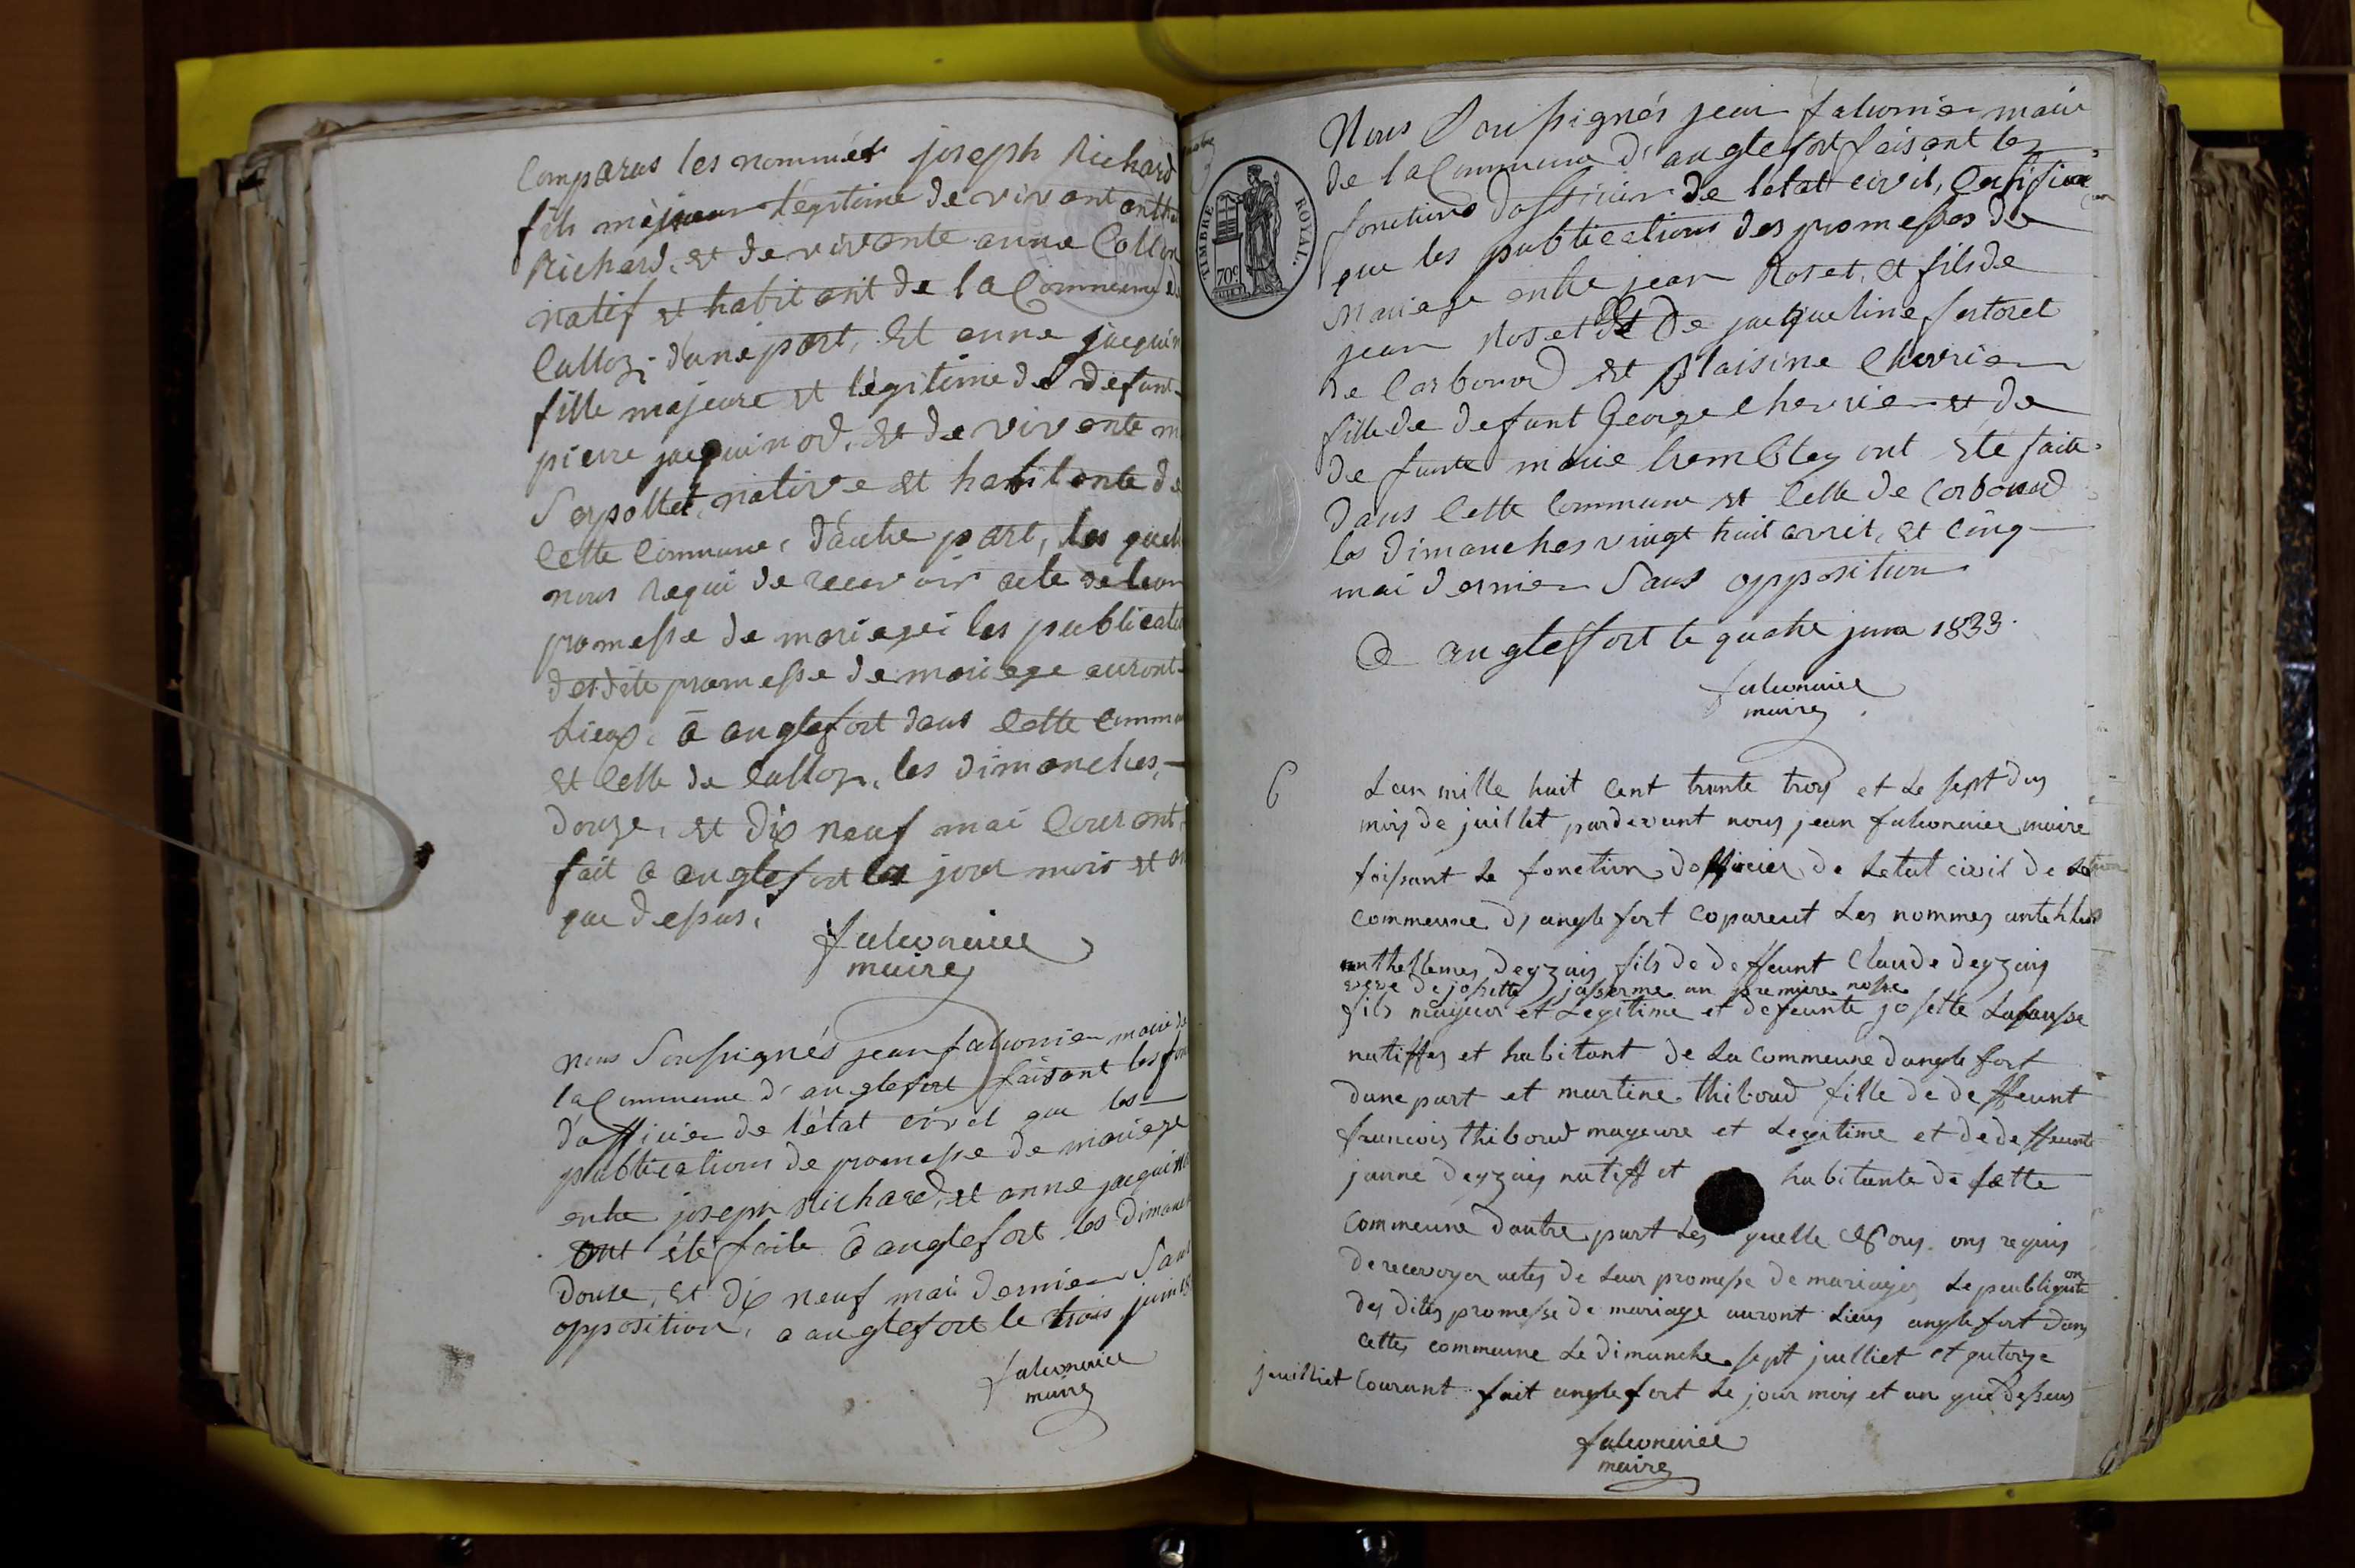 Comparus les nommés joseph Richard
fils majeur légitime de vivant
Richard, et de vivante anne
natif et habitant de la Commune de
Culloz, d'une part, Et anne jacquin
fille majeure et légitime de defunt
pierre jacquinod, et de vivante m
Serpollet, native et habitante de
Cette Commune, d'autre part, les quels
nous requi de recevoir acte de leur
promesse de mariage; les publicati
des dite promesse de mariage auront
lieux, a anglefort dans Cette Commu
et Celle de Culloz, les dimanches,
douze, et dix neuf mai Courant,
fait a anglefort les jour mois et an
que dessus.
falconnier
maire
Nous Soussignés jean falconnier maire de
la Commune d'anglefort faisant les fon
d'officier de l'état civil que les
publications de promesse de mariage
entre joseph Richard, et anne jacquinod
ont été faite a anglefort les dimanch
douze, et dix neuf mai dernier Sans
opposition, a anglefort le trois juin 18
falconnier
maire
TIMBRE ROYAL.
70c
Nous Soussignés jean falconnier maire
de la Commune d'anglefort faisant les
fonctions d'officier de l'etat civil, Certifions
que les publications des promesses de
Mariage entre jean Roset, et fils de
jean Roset et de jacqueline fertoret
de Corbonod et Blaisine Chevrier
fille de defunt George Chevrier et de
defunte marie trembley ont été faite
dans Cette Commune et Celle de Corbonod
les dimanches vingt huit avril, et Cinq
mai dernier Sans opposition
a angleffort le quatre juin 1833.
falconnier
maire
6
Lan mille huit cent trente troys et Le sept dus
mois de juillet pardevant nous jean falconnier maire
faissant Le fonction dofficier de Letat civil de
commeune d, anglefort coparent Les nommes
anthellemes deyzais fils de deffeunt Claude deyzais
veve de josette jaserme an premiere nosse
fils mayeur et Legitime et defeunte josette
natiffes et habitant de La commeune danglefort
dune part et martine thiboud fille de deffeunt
francois thiboud mayeure et Legitime et de deffeunte
janne deyzais natiff et habitante de sette
commeune dautre part Les quelle nous ons requis
de recevoyer actes de Leur promesse de mariages Le peublication
des dites promesse de mariage auront Lieus anglefort dans
cettes commeune Le dimanche sept juilliet et quatorze
juilliet Courant fait anglefort Le jour mois et an que desseus
falconnier
maire